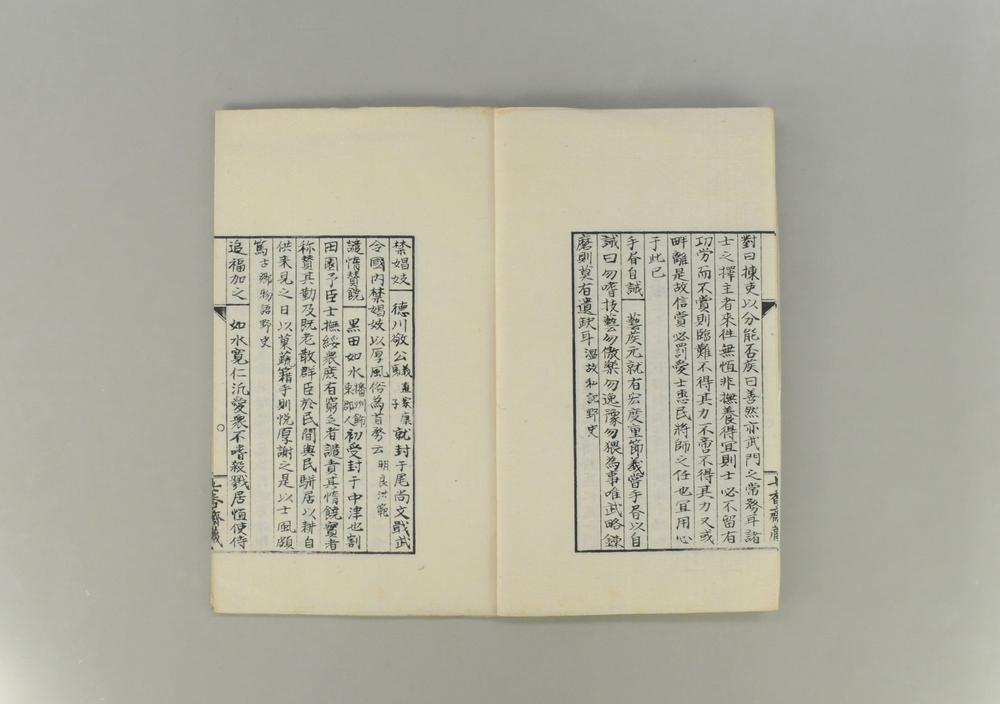 對曰揀吏以分能否矦曰善然亦武門之常務耳諸
士之擇主者來往無恆非撫養得宜則士必不留有
功労而不賞則臨難不得其力不啻不得其力又或
畔離是故信賞必罰愛士惠民將師之任也宜用心
于此已
手眷自誡 藝矦元就有宏度重節義嘗手眷以自
誡曰勿嗜技藝勿傲樂勿逸豫勿猥為事唯武略錬
磨則莫有遺缺耳 温故私記野史
禁娼妓 德川敬公義直家康子就封于尾尚文戢武
令國內禁娼妓以厚風俗為首務云 明良洪範
譴惰賛饒 黒田如水播州飾東郡人初受封于中津也割
田園予臣士撫綏衆庶有窮乏者譴責其惰饒竇者
称賛其勤及既老散群臣於民間與民駢居以耕自
供来見之日以菓蔬藉手則悦厚謝之是以士風頗
篤 古郷物語野史
追福加之 如水寛仁汎愛衆不嗜殺戮居恆使侍
七香齋蔵
七香齋蔵